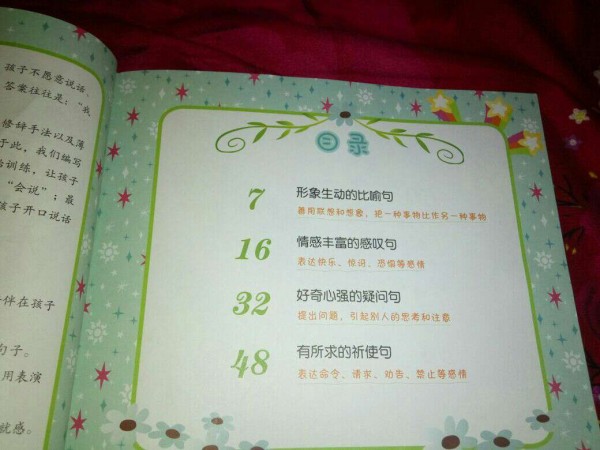 孩子不愿意说话
答案往往是：“我
修辞手法以及薄
于此，我们编写
训练，让孩子
“会说”；最
孩子开口说话
伴在孩子
句子。
用表演
就感。
目录
7 形象生动的比喻句
善用联想和想象，把一种事物比作另一种事物
16 情感丰富的感叹句
表达快乐、惊讶、恐惧等感情
32 好奇心强的疑问句
提出问题，引起别人的思考和注意
48 有所求的祈使句
表达命令、请求、劝告、禁止等感情